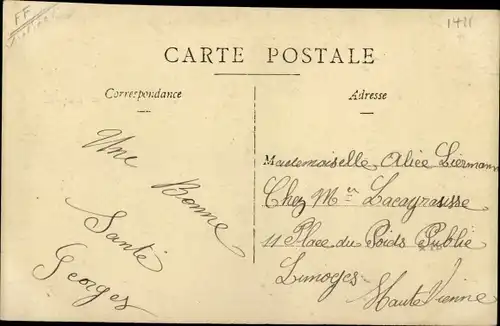 FF
1421
CARTE POSTALE
Correspondance
Adresse
Une Bonne
Santé
Georges
Mademoiselle Alice Liermann
Chez Mr Lacagrausse
11 Place du Poids Public
Limoges
Haute Vienne